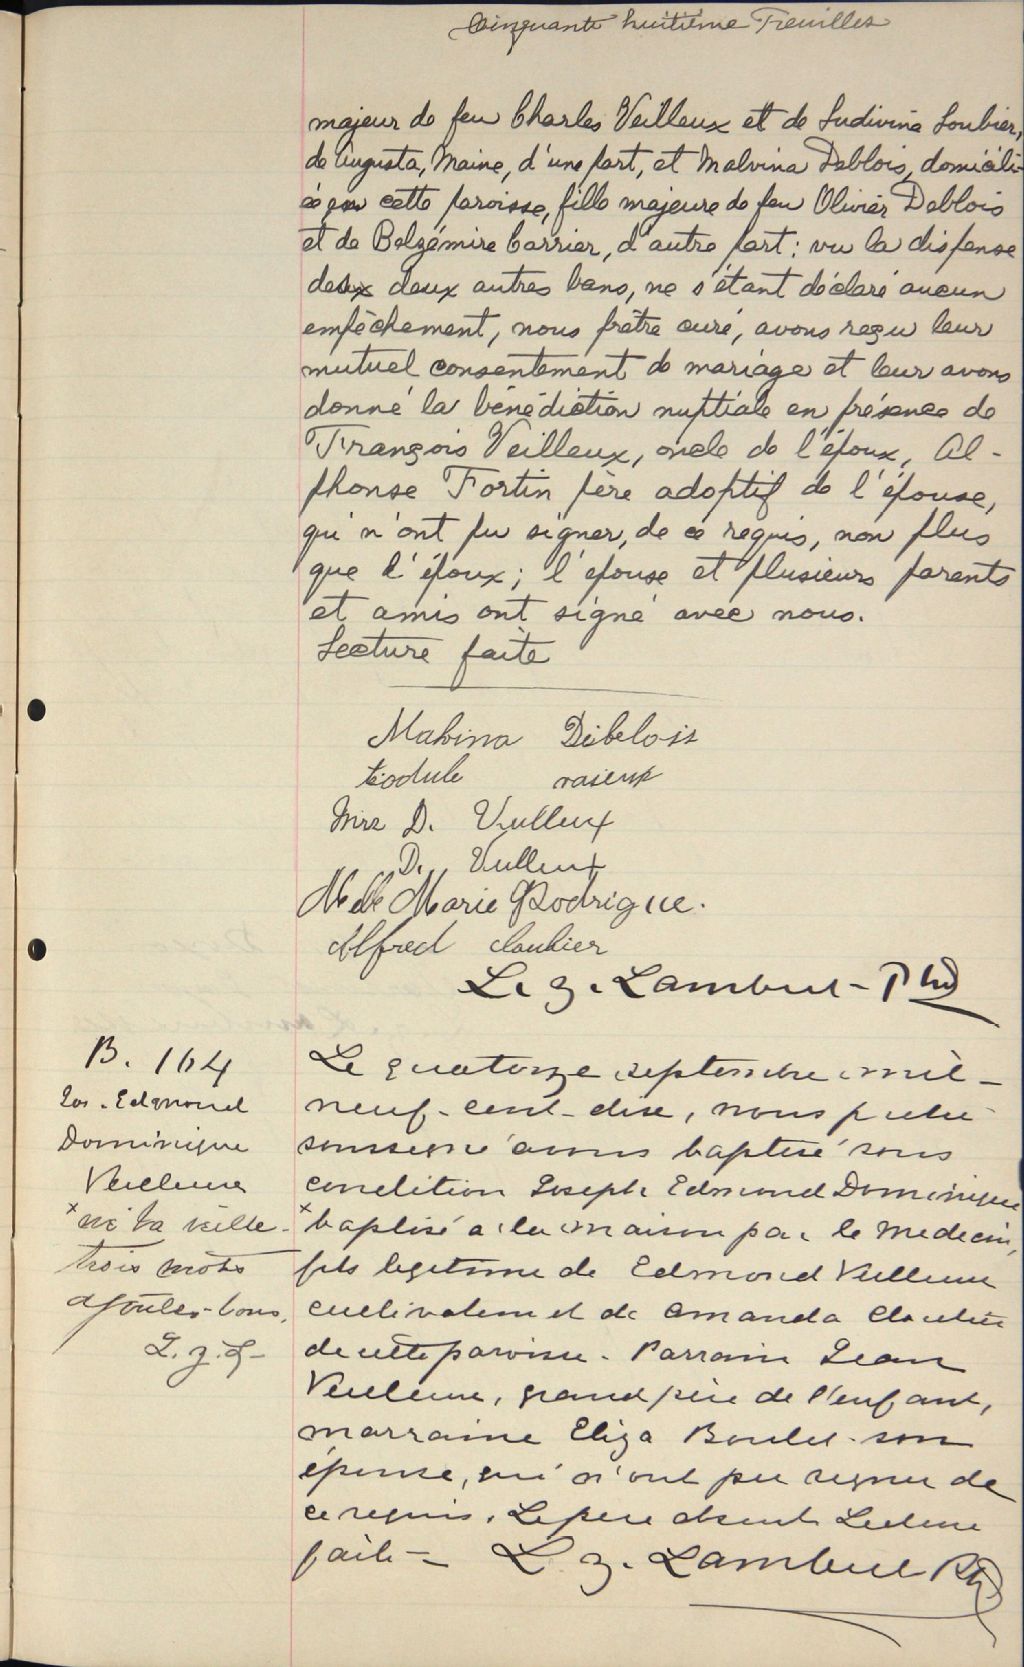 Cinquante huitième Feuillet
majeur de feu Charles Veilleux et de Ludivine Loubier,
de Augusta, Maine, d'une part, et Malvina Deblois, domicili-
ée en cette paroisse, fille majeure de feu Olivier Deblois
et de Belzémire Carrier, d'autre part: vu la dispense
des deux autres bans, ne s'étant déclaré aucun
empêchement, nous prêtre curé, avons reçu leur
mutuel consentement de mariage et leur avons
donné la bénédiction nuptiale en présence de
François Veilleux, oncle de l'époux, Al-
phonse Fortin père adoptif de l'épouse,
qui n'ont pu signer, de ce requis, non plus
que l'époux; l'épouse et plusieurs parents
et amis ont signé avec nous.
Lecture faite
Malvina Debelois
téodule
Mrs D. Veilleux
D. Veilleux
Melle Marie Rodrigue.
Alfred Loubier
L. Z. Lambert - Ptre
B. 164
Jos. Edmond
Dominique
Veilleux
x né la veille -
trois mots
ajoutés - bons.
L. Z. L -
Le quatorze septembre mil -
neuf - cent - dix, nous prêtre
soussigné avons baptisé sous
condition Joseph Edmond Dominique
x baptisé à la maison par le médecin,
fils légitime de Edmond Veilleux
cultivateur et de Amanda Cloutier
de cette paroisse - Parrain Jean
Veilleux, grand père de l'enfant,
marraine Eliza Boulet son
épouse, qui n'ont pu signer de
ce requis. Le père absent Lecture
faite - L. Z. Lambert Ptre